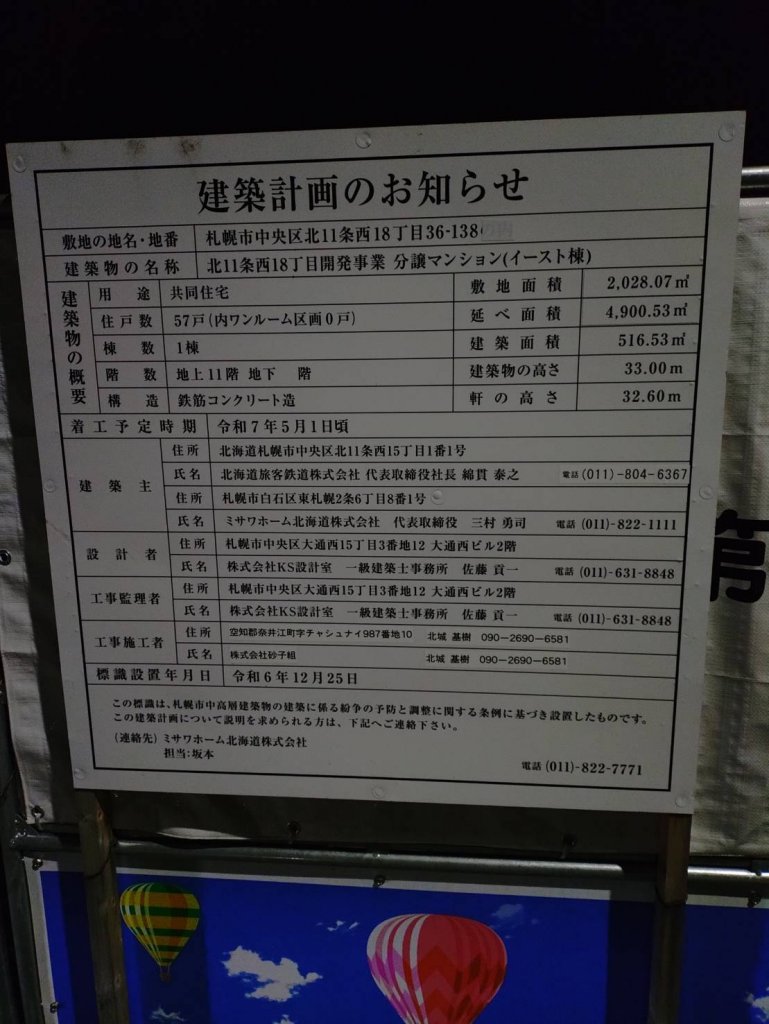 建築計画のお知らせ
敷地の地名・地番 札幌市中央区北11条西18丁目36-138
建築物の名称 北11条西18丁目開発事業 分譲マンション(イースト棟)
建築物の概要
用途 共同住宅 敷地面積 2,028.07㎡
住戸数 57戸(内ワンルーム区画0戸) 延べ面積 4,900.53㎡
棟数 1棟 建築面積 516.53㎡
階数 地上11階 地下 階 建築物の高さ 33.00m
構造 鉄筋コンクリート造 軒の高さ 32.60m
着工予定時期 令和7年5月1日頃
建築主 住所 北海道札幌市中央区北11条西15丁目1番1号
氏名 北海道旅客鉄道株式会社 代表取締役社長 綿貫 泰之 電話(011)-804-6367
住所 札幌市白石区東札幌2条6丁目8番1号
氏名 ミサワホーム北海道株式会社 代表取締役 三村 勇司 電話 (011)-822-1111
設計者 住所 札幌市中央区大通西15丁目3番地12 大通西ビル2階
氏名 株式会社KS設計室 一級建築士事務所 佐藤 貢一 電話 (011)-631-8848
工事監理者 住所 札幌市中央区大通西15丁目3番地12 大通西ビル2階
氏名 株式会社KS設計室 一級建築士事務所 佐藤 貢一 電話 (011)-631-8848
工事施工者 住所 空知郡奈井江町字チャシュナイ987番地10 北城 基樹 090-2690-6581
氏名 株式会社砂子組 北城 基樹 090-2690-6581
標識設置年月日 令和6年12月25日
この標識は、札幌市中高層建築物の建築に係る紛争の予防と調整に関する条例に基づき設置したものです。
この建築計画について説明を求められる方は、下記へご連絡下さい。
(連絡先) ミサワホーム北海道株式会社
担当:坂本
電話 (011)-822-7771
第